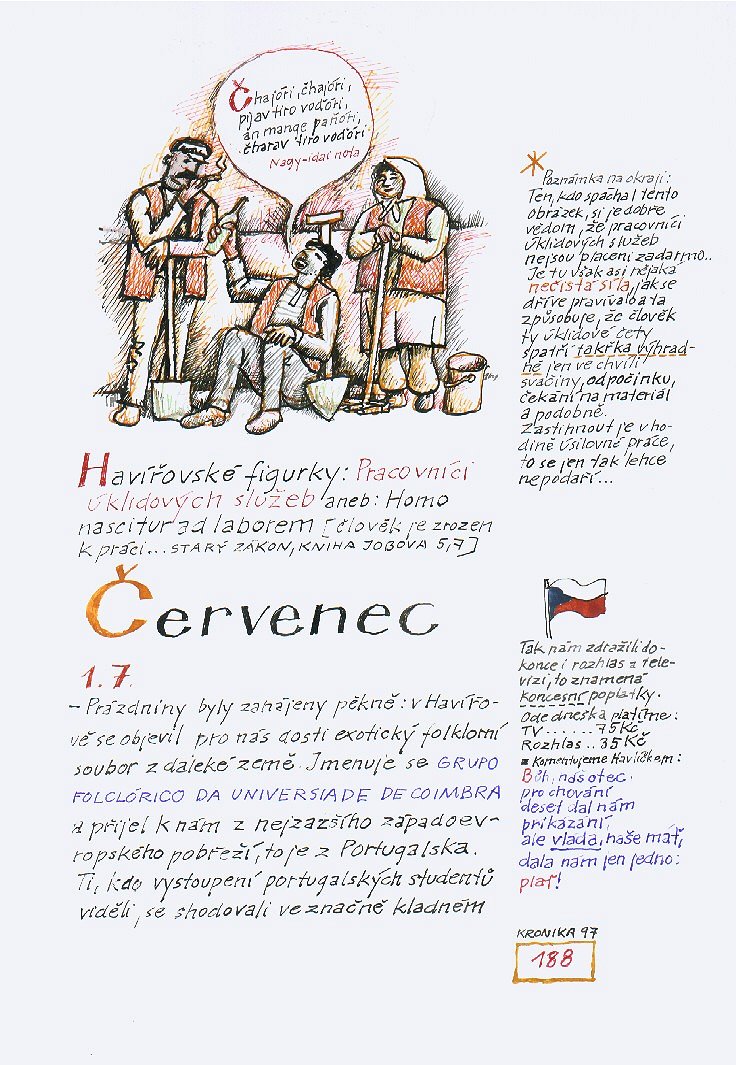 Čhajóri, čhajóri,
pijav tiro voďóri,
an mange paňóri,
čharav tiro voďóri
Nagy-idai nota
* Poznámka na okraji:
Ten, kdo spáchal tento
obrázek, si je dobře
vědom, že pracovníci
úklidových služeb
nejsou placeni zadarmo..
Je tu však asi nějaká
nečistá síla, jak se
dříve pravívalo a ta
způsobuje, že člověk
ty úklidové čety
spatří takřka výhrad-
ně jen ve chvíli
svačiny, odpočinku,
čekání na materiál
a podobně.
Zastihnout je v ho-
dině úsilovné práce,
to se jen tak lehce
nepodaří...
Havířovské figurky: Pracovníci
úklidových služeb aneb: Homo
nascitur ad laborem [člověk je zrozen
k práci... STARÝ ZÁKON, KNIHA JOBOVA 5,7]
Červenec
1.7.
- Prázdniny byly zahájeny pěkně: v Havířo-
vě se objevil pro nás dosti exotický folklorní
soubor z daleké země. Jmenuje se GRUPO
FOLCLÓRICO DA UNIVERSIADE DE COIMBRA
a přijel k nám z nejzazšího západoev-
ropského pobřeží, to je z Portugalska.
Ti, kdo vystoupení portugalských studentů
viděli, se shodovali ve značně kladném
Tak nám zdražili do-
konce i rozhlas a tele-
vizi, to znamená
koncesní poplatky.
Ode dneška platíme:
TV......75 Kč
Rozhlas..35 Kč
a komentujeme Havlíčkem:
Bůh, náš otec
pro chování
deset dal nám
přikázání,
ale vláda, naše máť,
dala nám jen jedno:
plať!
KRONIKA 97
188